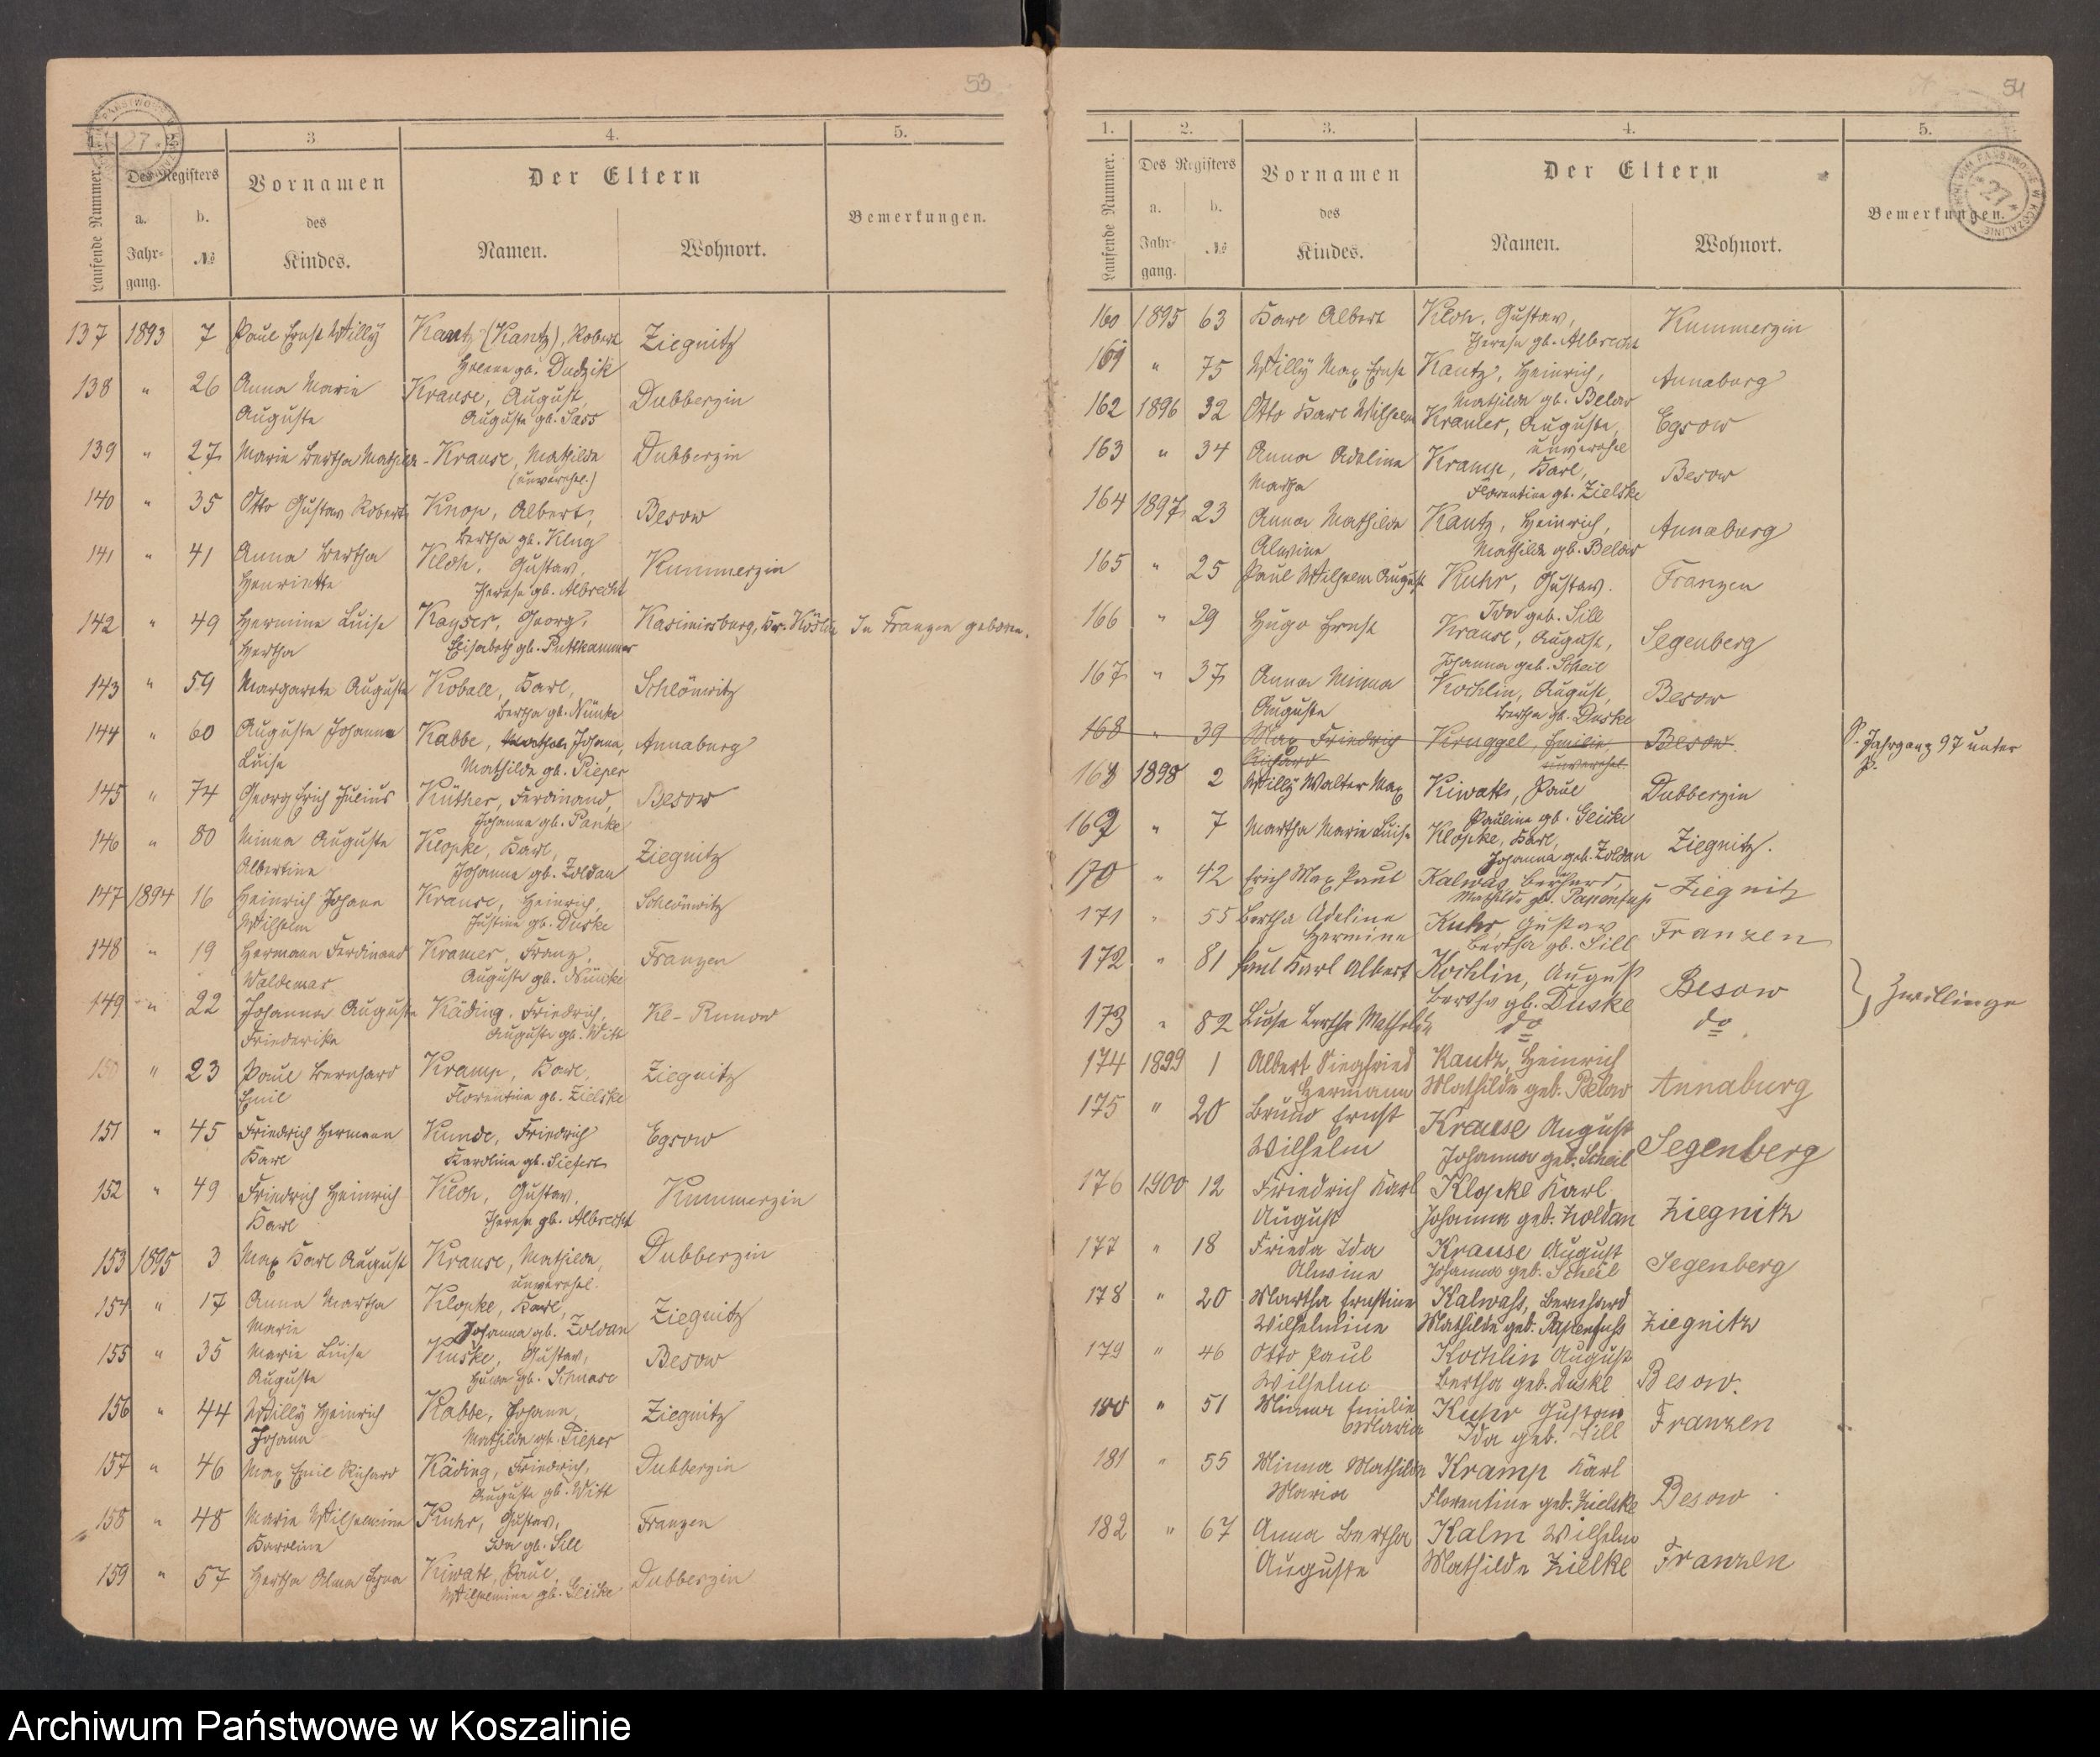 53
1. 2. 3 4. 5.
Laufende Nummer. Des Registers Vornamen Der Eltern
a. b. des Bemerkungen.
Jahr- № Kindes. Namen. Wohnort.
gang.
137 1893 7 Paul Ernst Willy Kautz (Kantz), Robert Ziegnitz
Helene gb. Dudzik
138 " 26 Anna Marie Krause, August, Dubberzin
Auguste Auguste gb. Sass
139 " 27 Marie Bertha Mathilde - Krause, Mathilde Dubberzin
(unverehel.)
140 " 35 Otto Gustav Robert Knop, Albert, Besow
Bertha gb. Klug
141 " 41 Anna Bertha Kloh, Gustav, Kummerzin
Henriette Therese gb. Albrecht
142 " 49 Hermine Luise Kayser, Georg, Kasimirsburg, Kr. Köslin In Franzen geboren.
Hertha Elisabeth gb. Puttkammer
143 " 59 Margarete Auguste Koball, Karl, Schlönwitz
Bertha gb. Nünke
144 " 60 Auguste Johanne Kabbe, Johann, Annaburg
Luise Mathilde gb. Pieper
145 " 74 Georg Erich Julius Küther, Ferdinand, Besow
Johanne gb. Panke
146 " 80 Minna Auguste Klopke, Karl, Ziegnitz
Albertine Johanne gb. Zoldan
147 1894 16 Heinrich Johann Krause, Heinrich, Schlönwitz
Wilhelm Justine gb. Duske
148 " 19 Hermann Ferdinand Kramer, Franz, Franzen
Waldemar Auguste gb. Nünke
149 " 22 Johanna Auguste Käding, Friedrich, Kl-Runow
Friederike Auguste gb. Witt
150 " 23 Paul Bernhard Kramp, Karl, Ziegnitz
Emil Florentine gb. Zielske
151 " 45 Friedrich Hermann Kunde, Friedrich Egsow
Karl Karoline gb. Siefert
152 " 49 Friedrich Heinrich Kloh, Gustav, Kummerzin
Karl Therese gb. Albrecht
153 1895 3 Max Karl August Krause, Mathilde, Dubberzin
unverehel.
154 " 17 Anna Martha Klopke, Karl, Ziegnitz
Marie Johanna gb. Zoldan
155 " 35 Marie Luise Kuske, Gustav, Besow
Auguste gb. Schnase
156 " 44 Willy Heinrich Kabbe, Johann, Ziegnitz
Johann Mathilde gb. Pieper
157 " 46 Max Emil Richard Käding, Friedrich, Dubberzin
Auguste gb. Witt
158 " 48 Marie Wilhelmine Kuhr, Gustav, Franzen
Karoline Ida gb. Sill
159 " 57 Hertha Alma Kiwatt, Paul, Dubberzin
Wilhelmine gb. Glicke
54
1. 2. 3. 4. 5.
Laufende Nummer. Des Registers Vornamen Der Eltern
a. b. des Bemerkungen.
Jahr- № Kindes. Namen. Wohnort.
gang.
160 1895 63 Karl Albert Kloh, Gustav, Kummerzin
Therese gb. Albrecht
161 " 75 Willy Max Ernst Kautz, Heinrich, Annaburg
Mathilde gb. Below
162 1896 32 Otto Karl Wilhelm Kramer, Auguste, Egsow
unverehel
163 " 34 Anna Adeline Kramp, Karl, Besow
Martha Florentine gb. Zielske
164 1897 23 Anna Mathilde Kautz, Heinrich, Annaburg
Alwine Mathilde gb. Below
165 " 25 Paul Wilhelm August Kuhr, Gustav. Franzen
Ida geb. Sill
166 " 29 Hugo Ernst Krause, August, Segenberg
Johanna geb. Scheil
167 " 37 Anna Minna Kochlin, August, Besow
Auguste Bertha gb. Duske
168 " 39 Max Friedrich Kruggel, Emilie, Besow. S. Jahrgang 97 unter
Richard unverehel. P.
168 1898 2 Willy Walter Max Kiwatt, Paul Dubberzin
Pauline gb. Glicke
169 " 7 Martha Marie Luise Klopke, Karl, Ziegnitz.
Johanna geb. Zoldan
170 " 42 Erich Max Paul Kalwas, Bernhard, Ziegnitz
Mathilde gb. Papenfuß
171 " 55 Bertha Adeline Kuhr, Gustav Franzen
Hermine Bertha gb. Sill
172 " 81 Paul Karl Albert Kochlin, August Besow
Bertha gb. Duske } Zwillinge
173 " 82 Luise Bertha Mathilde do do
174 1899 1 Albert Siegfried Kautz, Heinrich Annaburg
Hermann Mathilde geb. Below
175 " 20 Bruno Ernst Krause August Segenberg
Wilhelm Johanna geb. Scheil
176 1900 12 Friedrich Karl Klopke Karl Ziegnitz
August Johanna geb. Zoldan
177 " 18 Frieda Ida Krause August Segenberg
Alwine Johanna geb. Scheil
178 " 20 Martha Ernstine Kalwass, Bernhard Ziegnitz
Wilhelmine Mathilde geb. Papenfuss
179 " 46 Otto Paul Kochlin August Besow.
Wilhelm Bertha geb. Duske
180 " 51 Minna Emilie Kuhr Gustav Franzen
Maria Ida geb. Sill
181 " 55 Minna Mathilde Kramp Karl Besow
Maria Florentine geb. Zielske
182 " 67 Anna Bertha Kalm Wilhelm Franzen
Auguste Mathilde Zielke
Archiwum Państwowe w Koszalinie